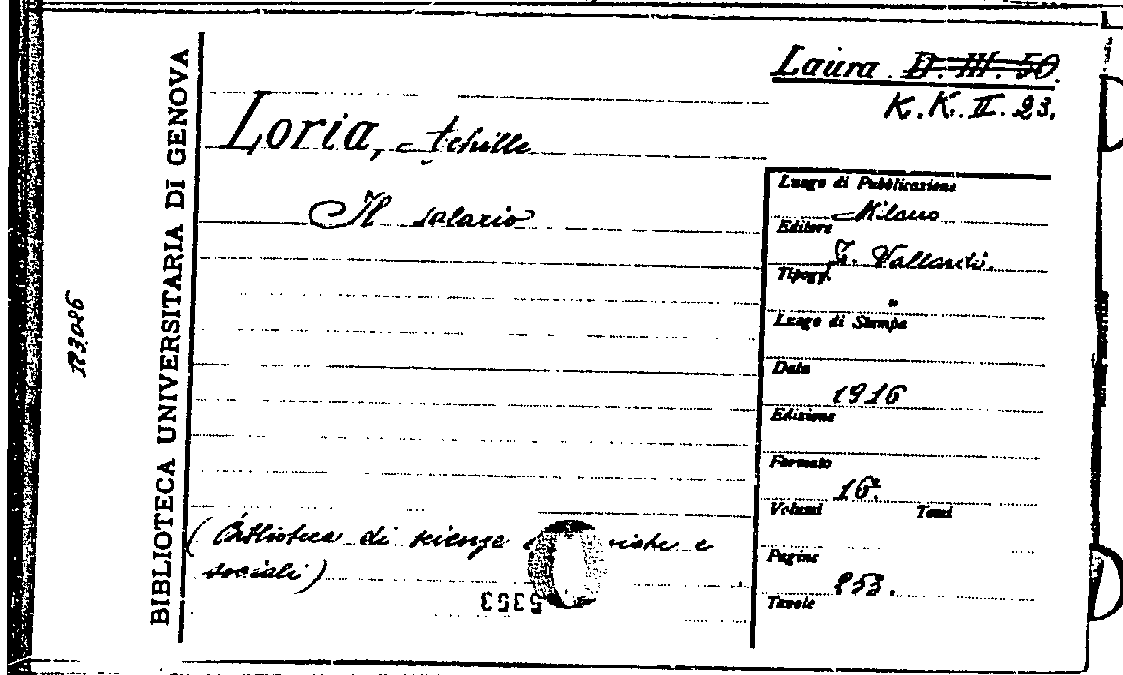 BIBLIOTECA UNIVERSITARIA DI GENOVA
Laura D. III. 50.
K. K. II. 23.
Loria, Achille
Il salario
Luogo di Pubblicazione
Milano
Editore
F. Vallardi.
Tipogr.
"
Luogo di Stampa
Data
1916
Edizione
Formato
16°.
Volumi Tomi
Pagine
253.
Tavole
(Biblioteca di scienze e
sociali)
5353